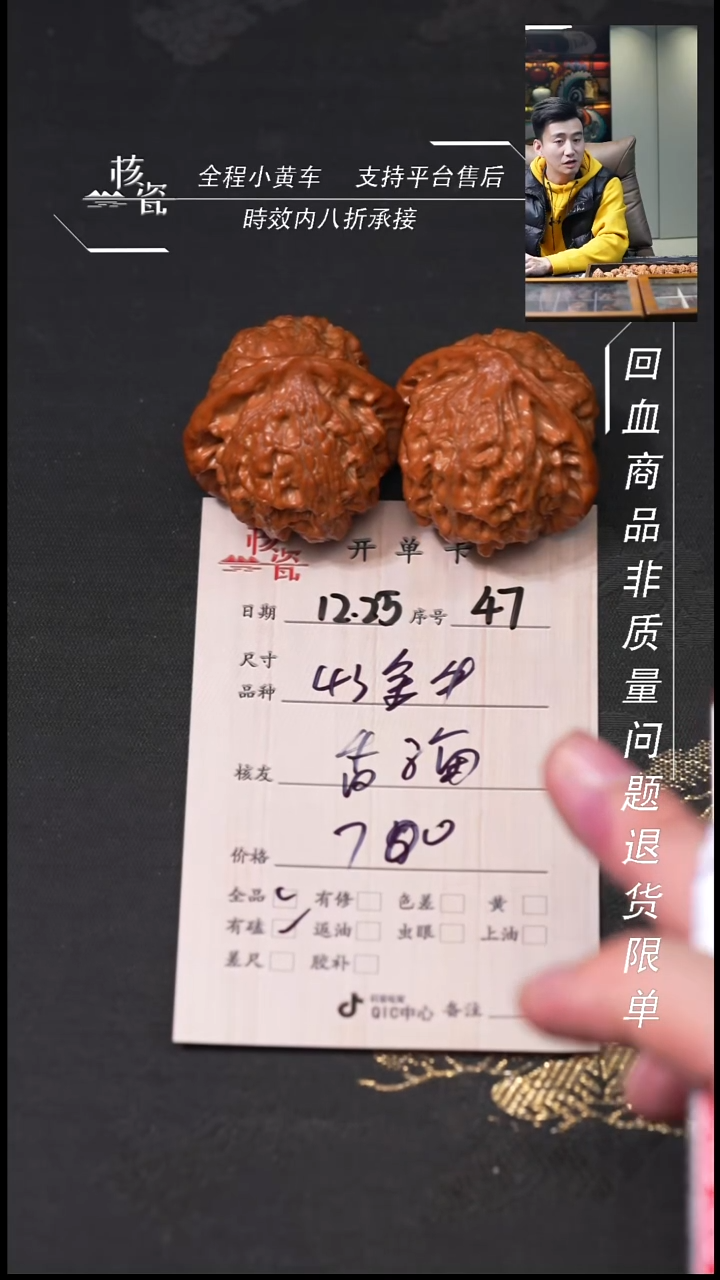 核瓷
全程小黄车 支持平台售后
時效内八折承接
回血商品非质量问题退货限单
核瓷
开单卡
日期 12.25 序号 47
尺寸
品种
核友
价格 700
全品 有修 色差 黄
有磕 返油 虫眼 上油
差尺 胶补
QIC中心 备注